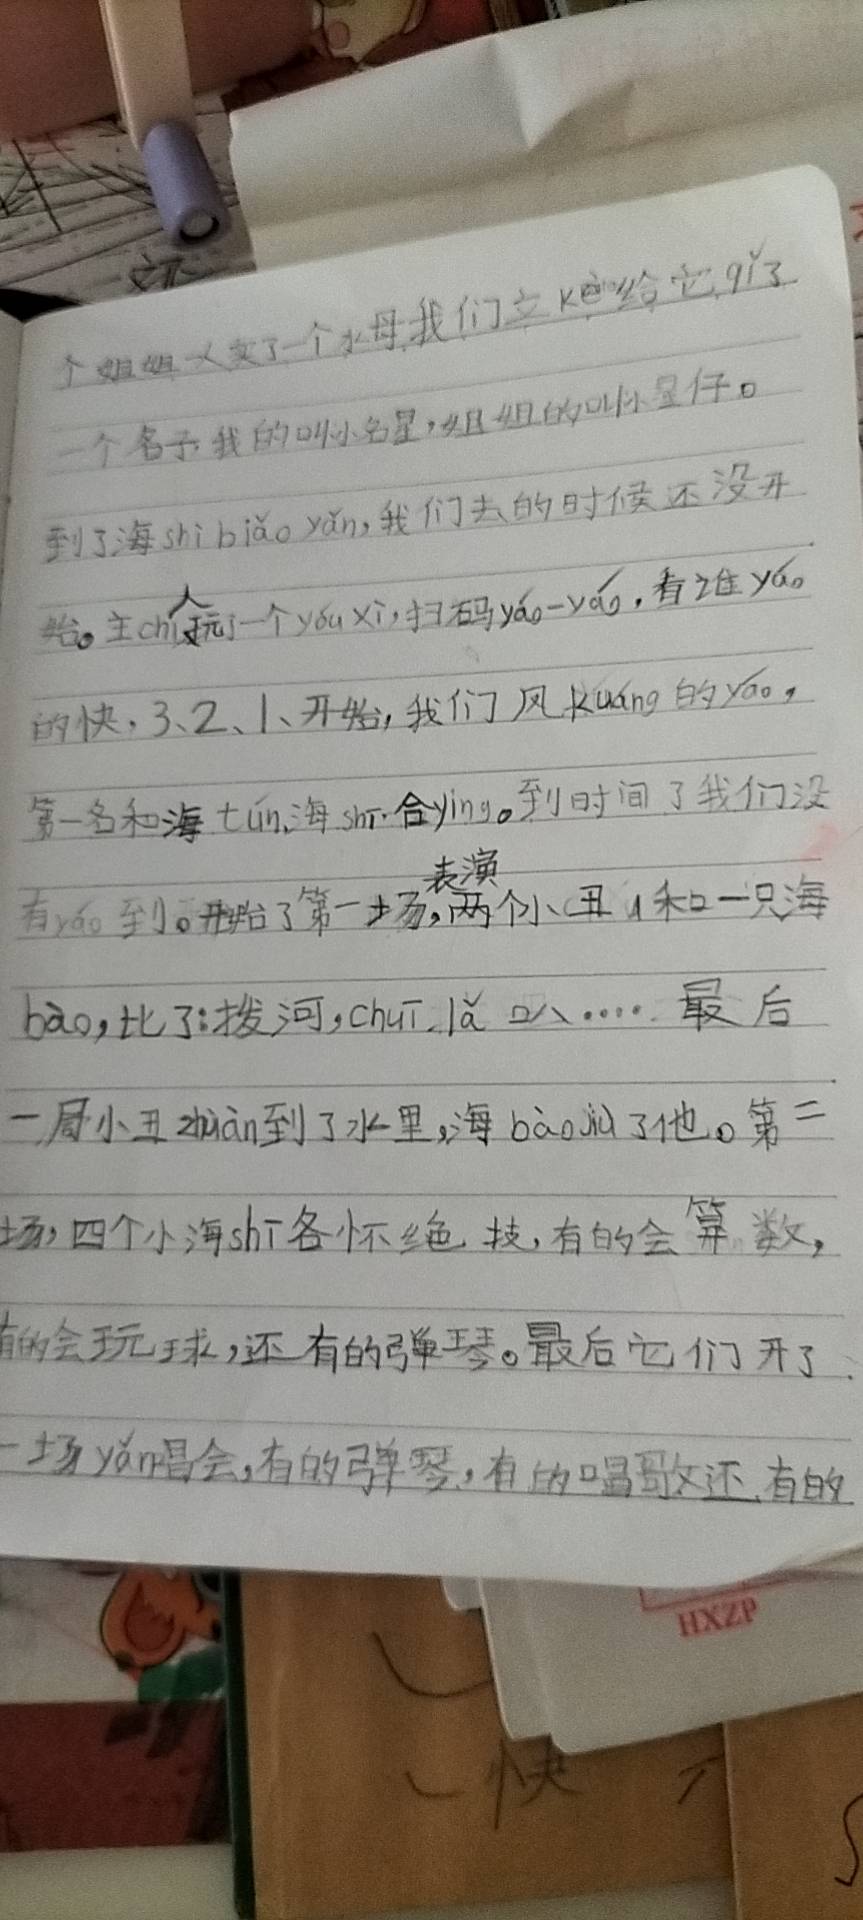 个姐姐一人买了一个水母,我们立kè给它qǐ了
一个名子,我的叫小名星,姐姐的叫小星仔。
到了海shībiǎo yǎn,我们去的时候还没开
始。主chí人玩了一个yóuxì,扫码yáo一yáo,看谁yáo
的快,3、2、1、开始,我们风kuáng的yáo,
第一名和海tún、海shī合yǐng。到时间了我们没
有yáo到。开始了第一场表演,两个小丑和一只海
bào,比了:拨河,chuī lǎ 叭……最后
一局小丑zhuàn到了水里,海bào jiù了他。第二
场,四个小海shī各怀绝技,有的会算数,
有的会玩球,还有的弹琴。最后它们开了
一场yǎn唱会,有的弹琴,有的唱歌还有的
HXZP
快